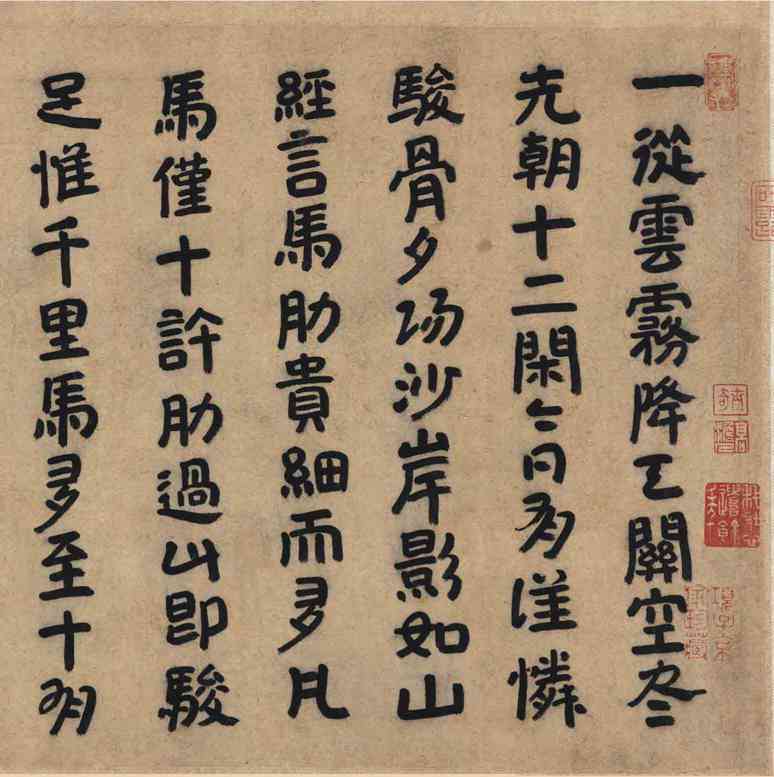 一從雲霧降天關空尽
先朝十二閑今日有誰憐
駿骨夕陽沙岸影如山
經言馬肋貴細而多凡
馬僅十許肋過此即駿
足惟千里馬多至十有